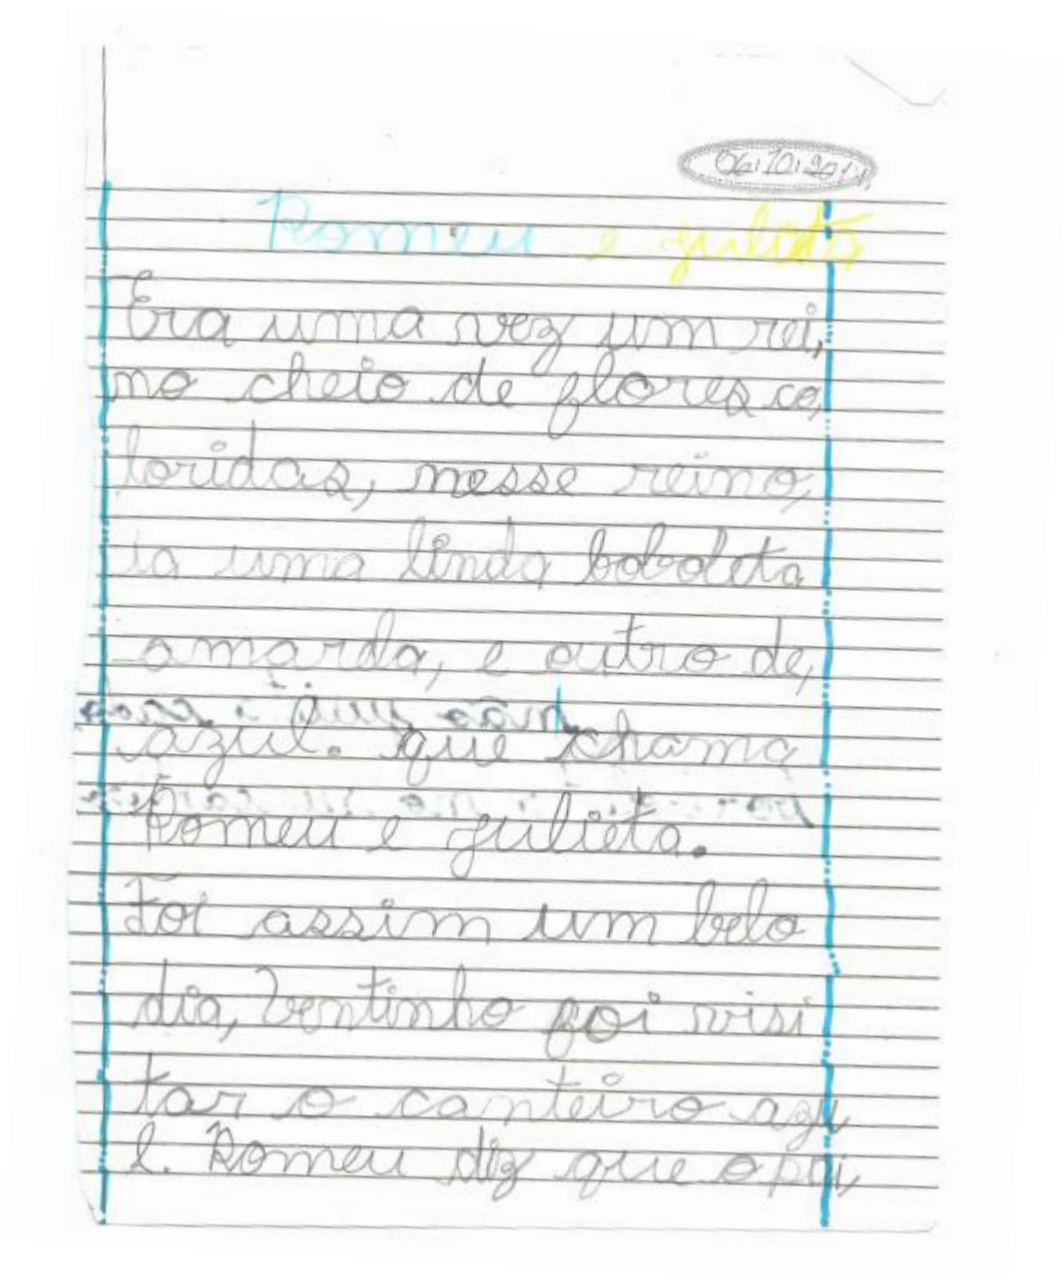 06.10.2014
Romeu e julieta
Era uma vez um rei,
no cheio de flores co,
loridas, nesse reino,
ia uma linda boboleta
amarela, e outro de,
azul. que chama
Romeu e julieta.
Foi assim um belo
dia, Ventinho foi visi
tar o canteiro azu
l. Romeu diz que o pai,